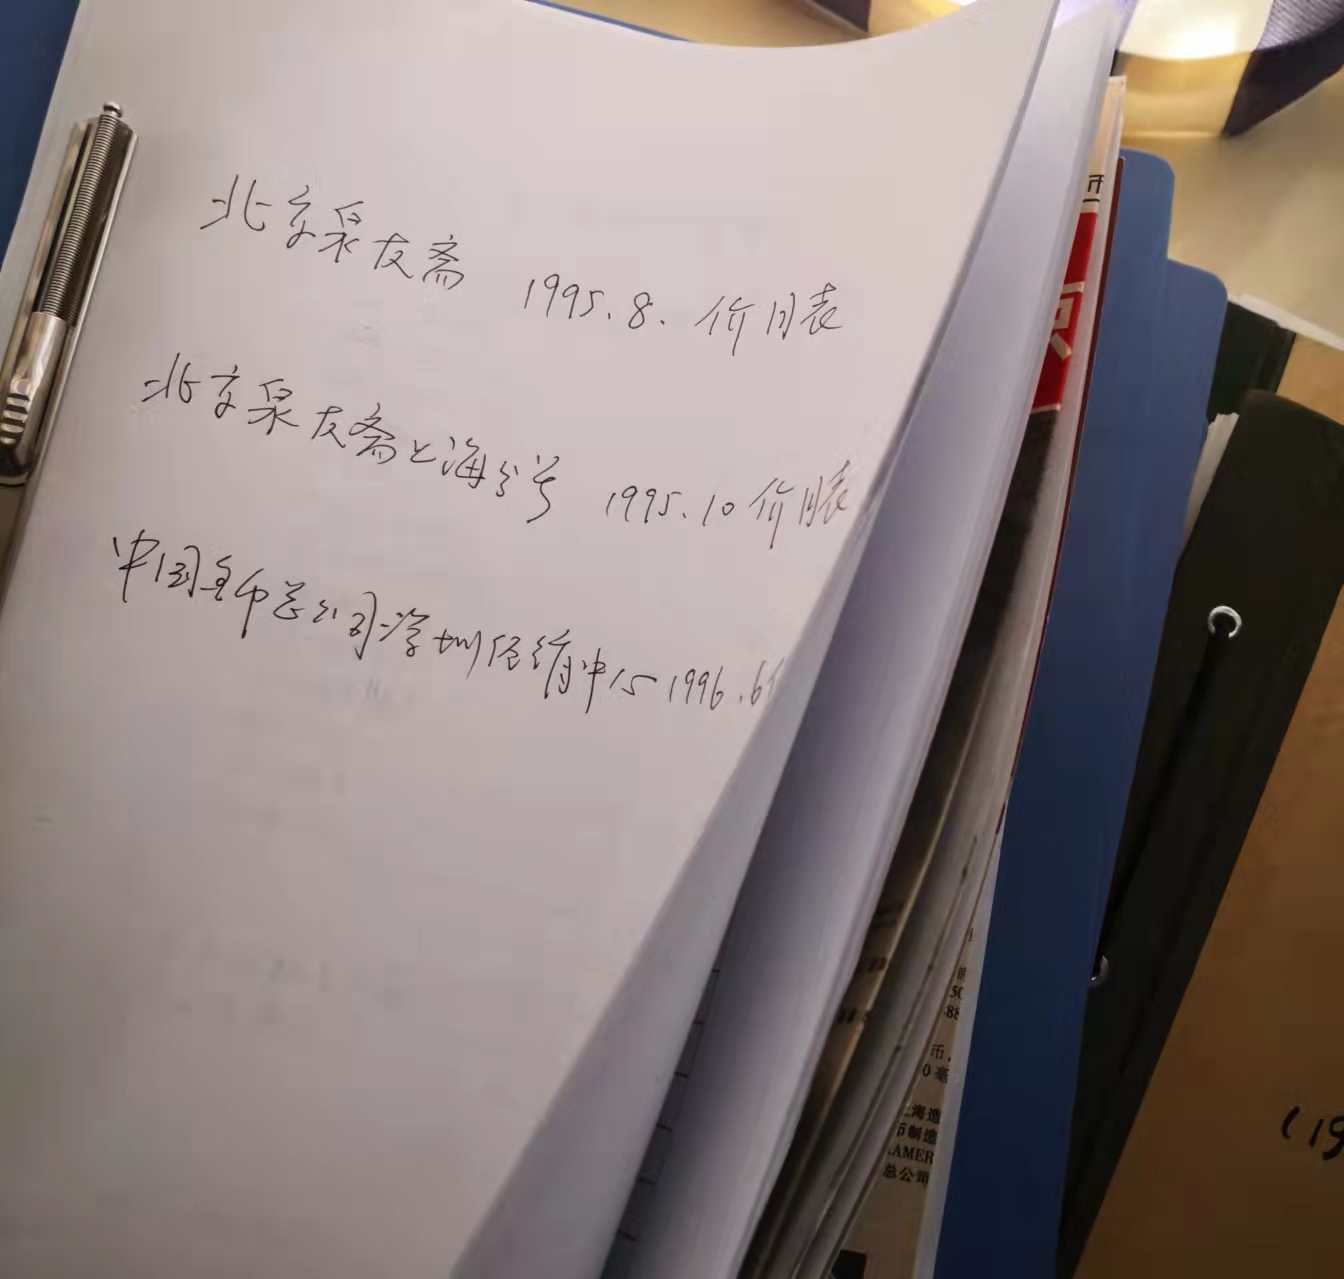 北京泉友斋 1995.8. 价目表
北京泉友斋上海分号 1995.10 价目表
中国金币总公司深圳经销中心 1996.6价
币
50
-88
币,
0毫
上海造
币制造
KAMER
总公司
(19